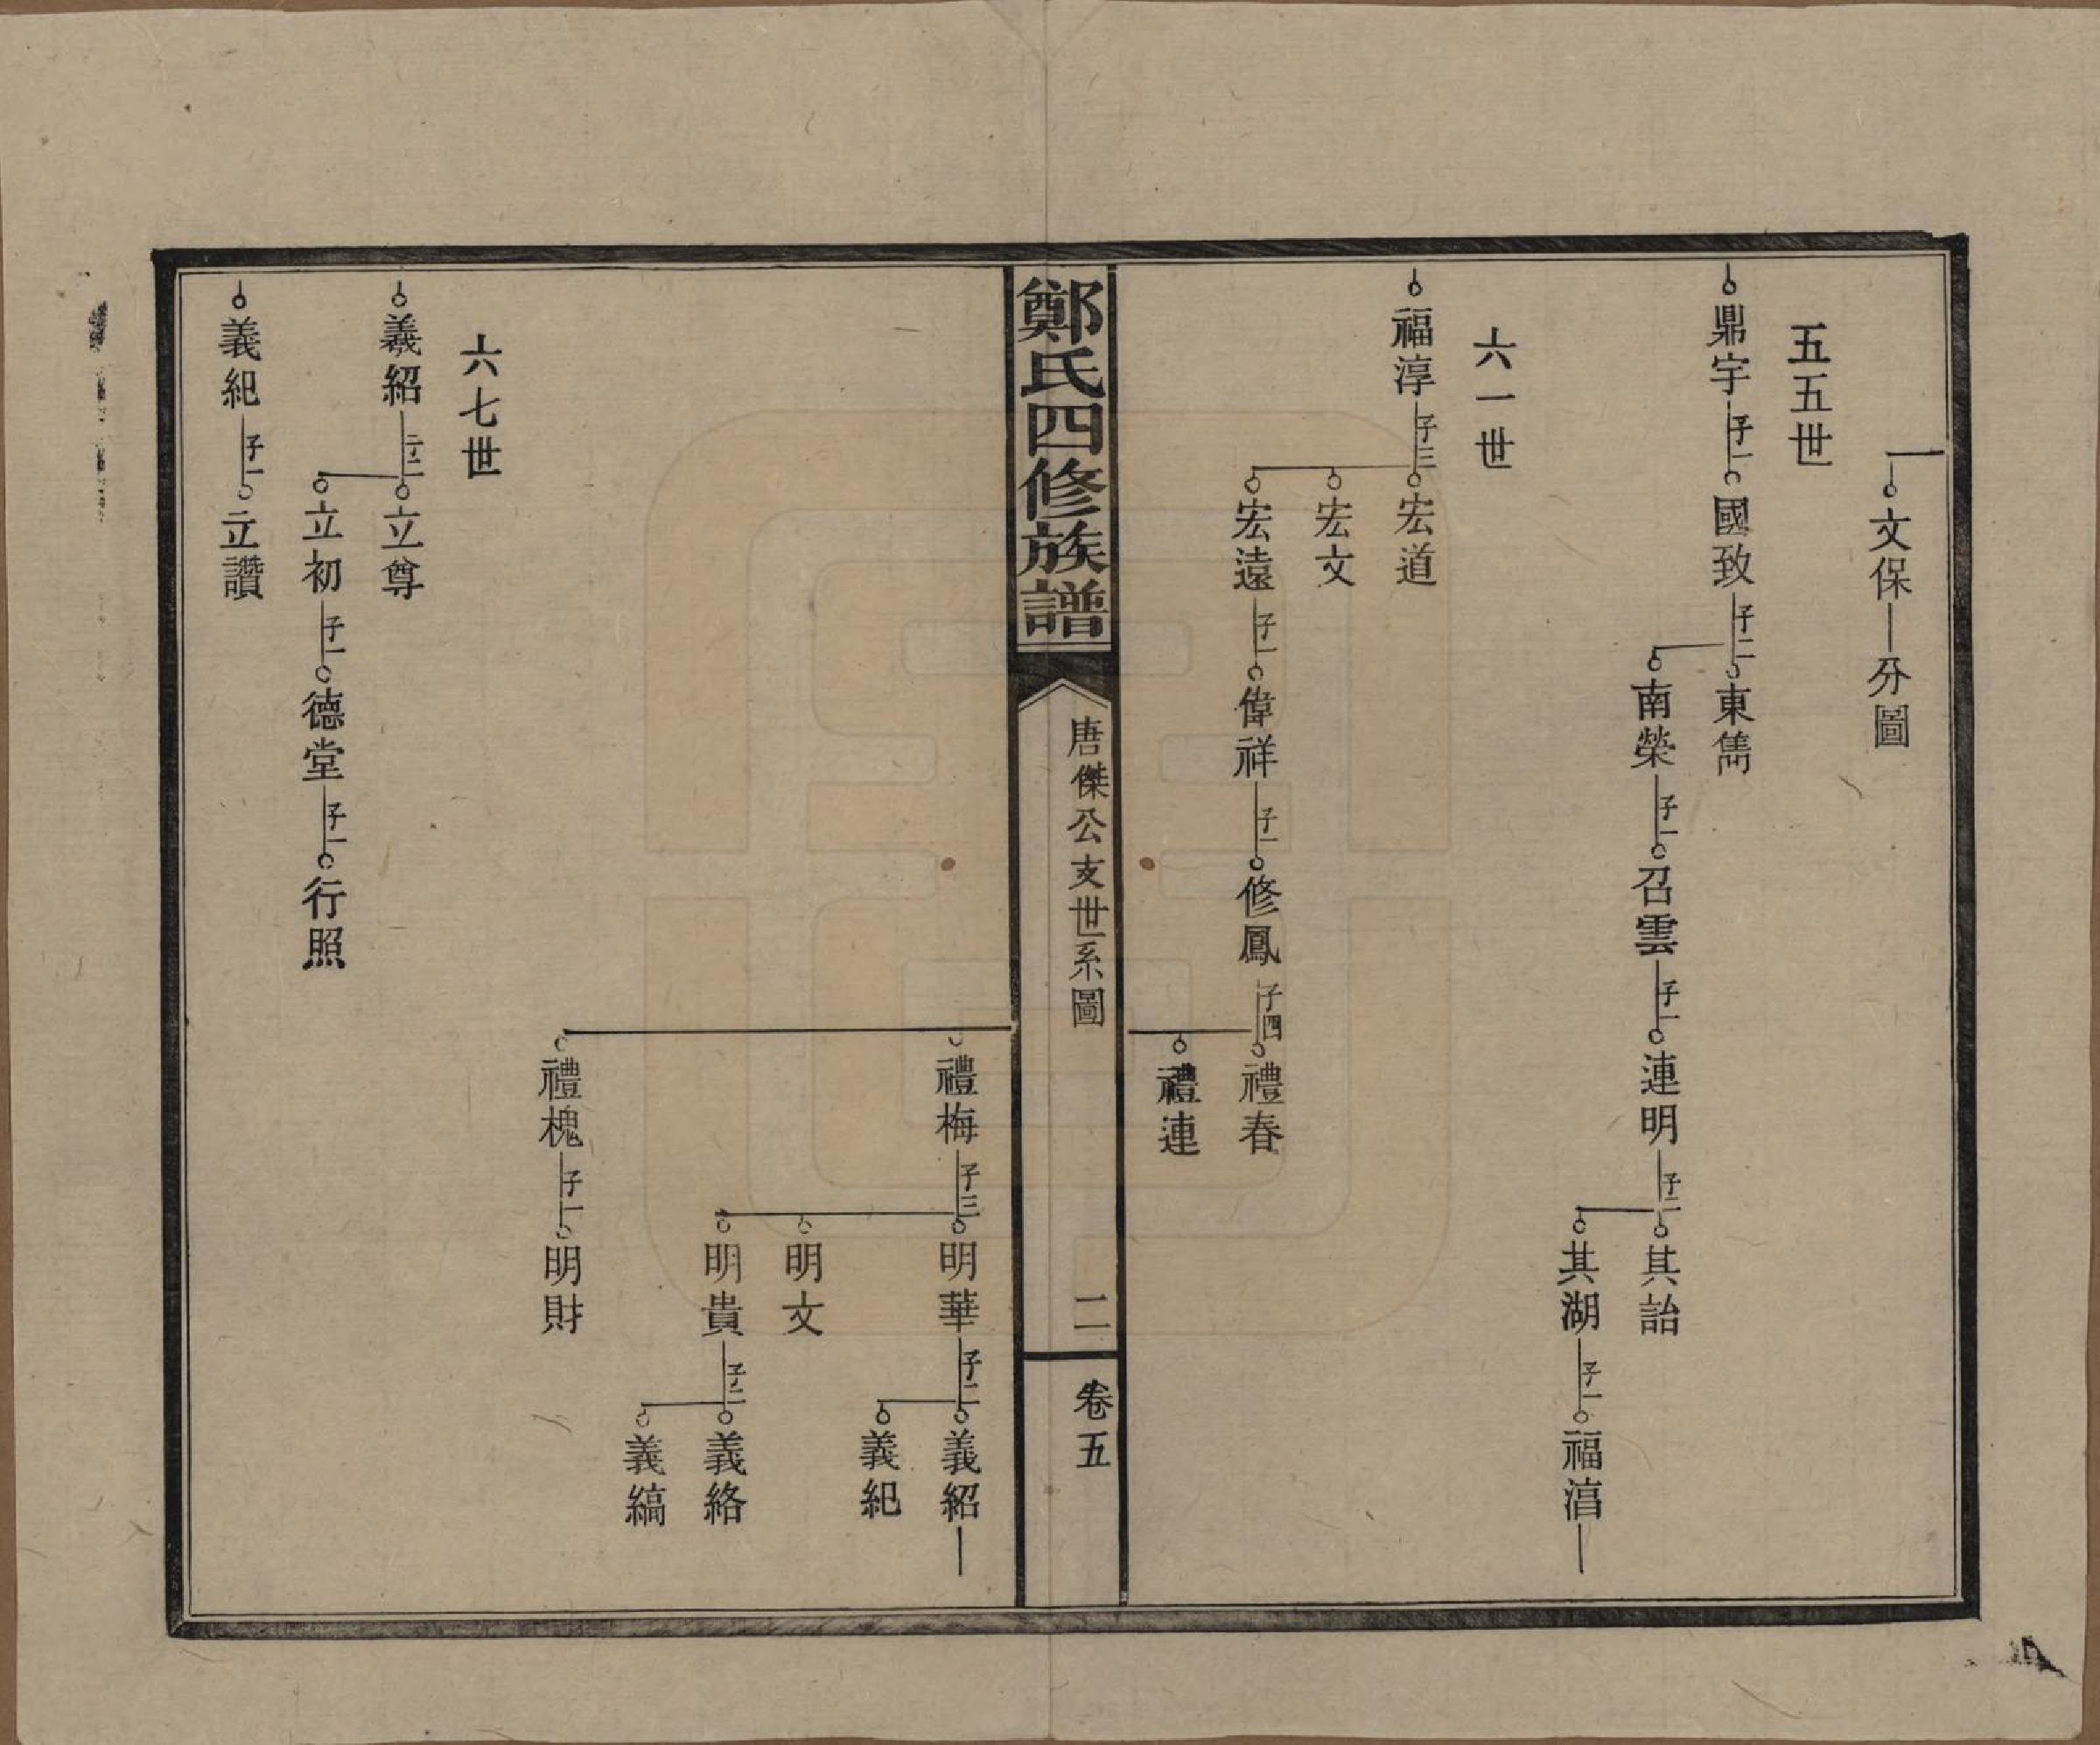 文保 分圖
五五世
鼎宇 子一 國致 子二 東雋
南榮 子一 召雲 子一 連明 子二 其詒
其湖 子一 福淐
六一世
福淳 子三 宏道
宏文
宏遠 子一 偉祥 子一 修鳳 子四 禮春
禮連
鄭氏四修族譜
唐傑公支世系圖
二
卷五
禮梅 子三 明華 子二 義紹
義紀
明文
明貴 子二 義絡
義縞
禮槐 子一 明財
六七世
義紹 子二 立尊
立初 子一 德堂 子一 行照
義紀 子一 立讚